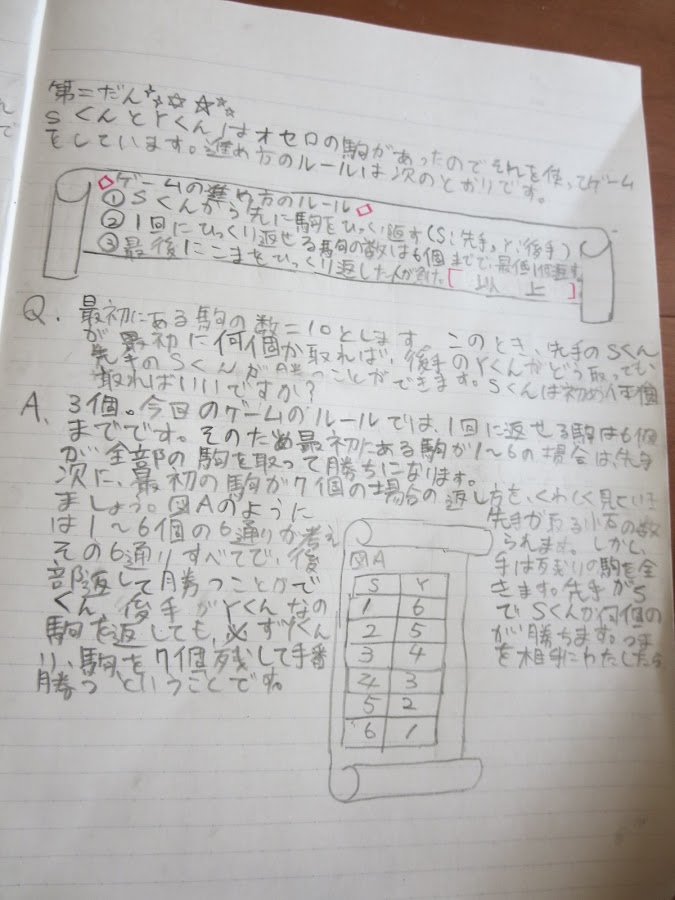 第二だん☆☆☆☆☆☆
SくんとYくんはオセロの駒があったのでそれを使ってゲーム
をしています。進め方のルールは次のとおりです。
◇ゲームの進め方のルール◇
①Sくんから先に駒をひっくり返す(S:先手,Y:後手)
②1回にひっくり返せる駒の数は6個までで、最低1個返す。
③最後にこまをひっくり返した人が勝ち。[以上]
Q. 最初にある駒の数=10とします。このとき、先手のSくん
が最初に何個か取れば、後手のYくんがどう取っても、
先手のSくんが勝つことができます。Sくんは初め何個
取ればいいですか?
A. 3個。今回のゲームのルールでは、1回に返せる駒は6個
までです。そのため最初にある駒が1~6の場合は、先手
が全部の駒を取って勝ちになります。
次に、最初の駒が7個の場合の返し方を、くわしく見ていき
ましょう。図Aのように先手が取る小石の数
は1~6個の6通りが考えられます。しかし、
その6通りすべてで、後手は残りの駒を全
部返して勝つことができます。先手がS
くん、後手がYくんなのでSくんが何個の
駒を返しても、必ずYくんが勝ちます。つま
り、駒を7個残して手番を相手にわたしたら
勝つ、ということです。
図A
S Y
1 6
2 5
3 4
4 3
5 2
6 1